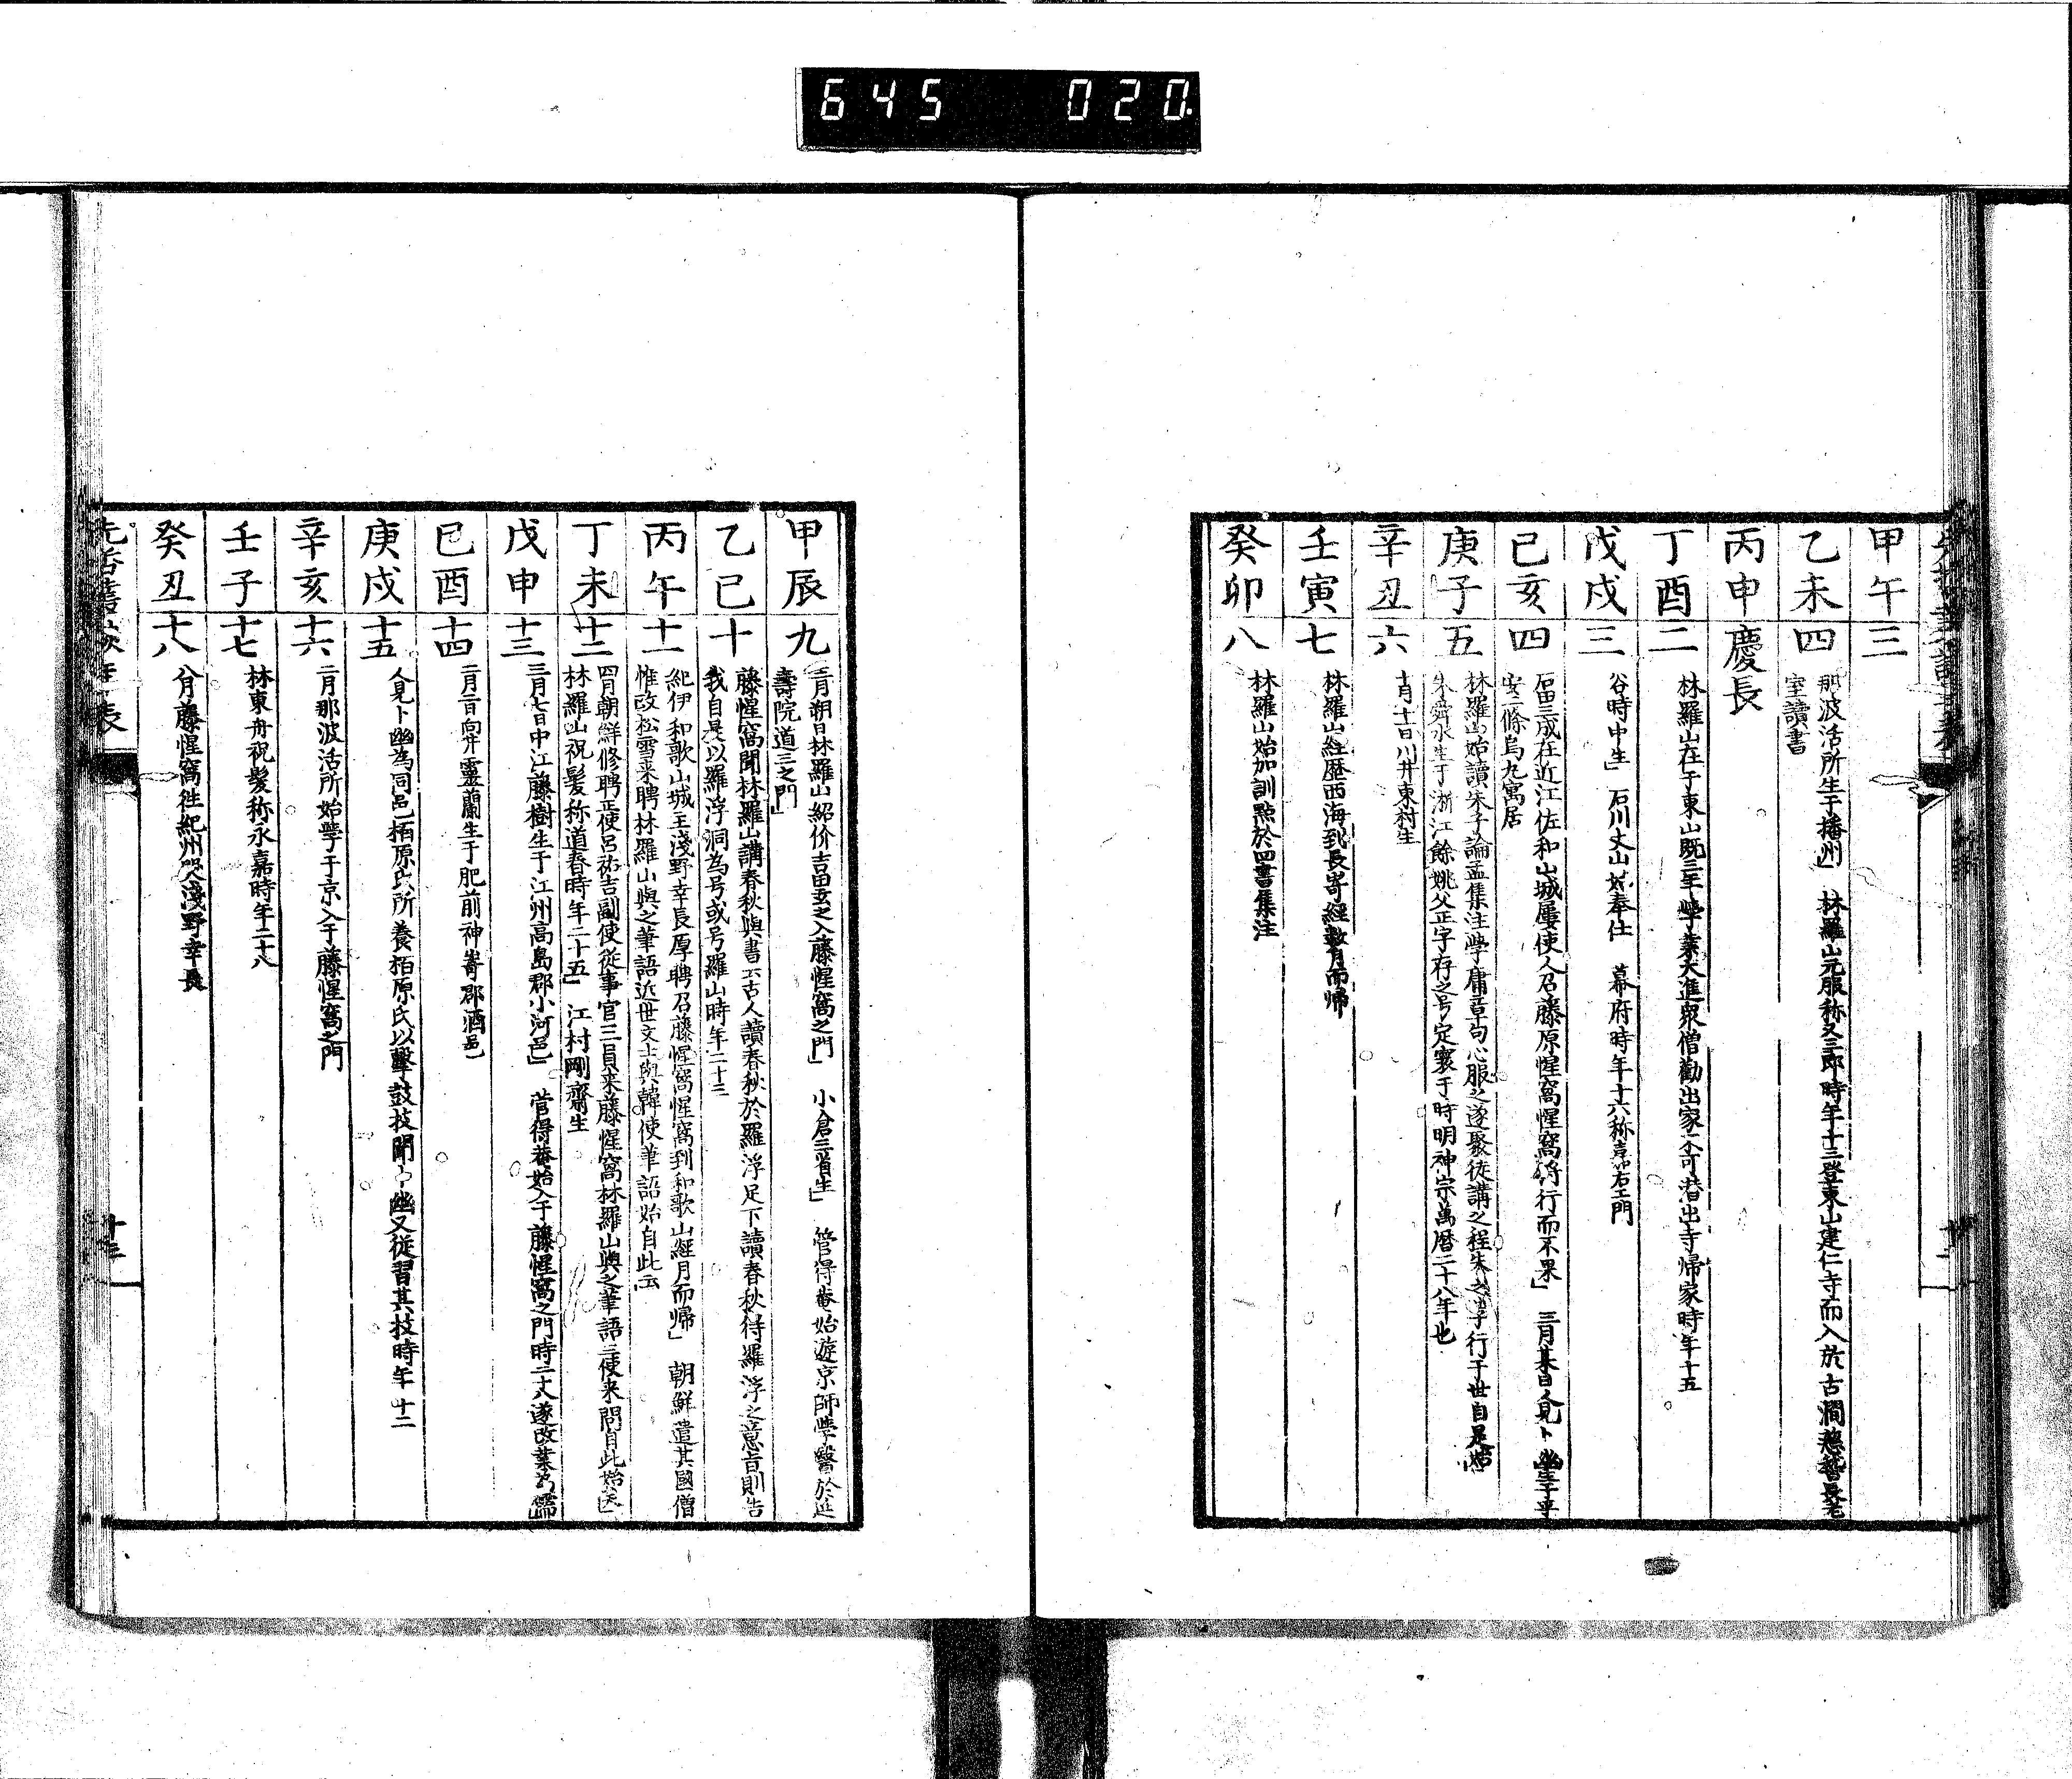 645 020
甲午三
乙未四
那波活所生于播州」 林羅山元服称又三郎時年十三登東山建仁寺而入於古澗慈稽長老
室讀書
丙申慶長
丁酉二
林羅山在于東山既三年學業大進衆僧勸出家不可潜出寺帰家時年十五
戊戌三
谷時中生」 石川丈山始奉仕 幕府時年十六称嘉右エ門
己亥四
石田三成在近江佐和山城屢使人召藤原惺窩惺窩將行而不果」 三月某日人見卜幽生于平
安二條烏丸寓居
庚子五
林羅山始讀朱子論孟集注學庸章句心服之遂聚徒講之程朱之學行于世自是始
朱舜水生于浙江餘姚父正字存之号定寰于時明神宗萬曆二十八年也
辛丑六
十月十日川井東村生
壬寅七
林羅山経歴西海到長嵜経数月而帰
癸卯八
林羅山始加訓點於四書集注
甲辰九
三月朔日林羅山紹价吉田玄之入藤惺窩之門」 小倉三省生」 管得菴始遊京師學醫於延
壽院道三之門」
乙巳十
藤惺窩聞林羅山講春秋與書云古人讀春秋於羅浮足下讀春秋得羅浮之意旨則告
我自是以羅浮洞為号或号羅山時年二十三
丙午十一
紀伊和歌山城主淺野幸長厚聘召藤惺窩惺窩到和歌山経月而帰」 朝鮮遣其國僧
惟政松雲来聘林羅山與之筆語近世文士與韓使筆語始自此云
丁未十二
四月朝鮮修聘正使呂祐吉副使從事官三員来藤惺窩林羅山與之筆語三使来問自此始矣
林羅山祝髪称道春時年二十五」 江村剛齋生
戊申十三
三月七日中江藤樹生于江州高島郡小河邑」 菅得菴始入于藤惺窩之門時二十八遂改業為儒
己酉十四
二月二日向井靈蘭生于肥前神嵜郡酒邑
庚戌十五
人見卜幽為同邑栢原氏所養栢原氏以擊鼓技聞卜幽又從習其技時年十二
辛亥十六
二月那波活所始學于京入于藤惺窩之門
壬子十七
林東舟祝髪称永嘉時年二十八
癸丑十八
八月藤惺窩徃紀州哭淺野幸長
十三